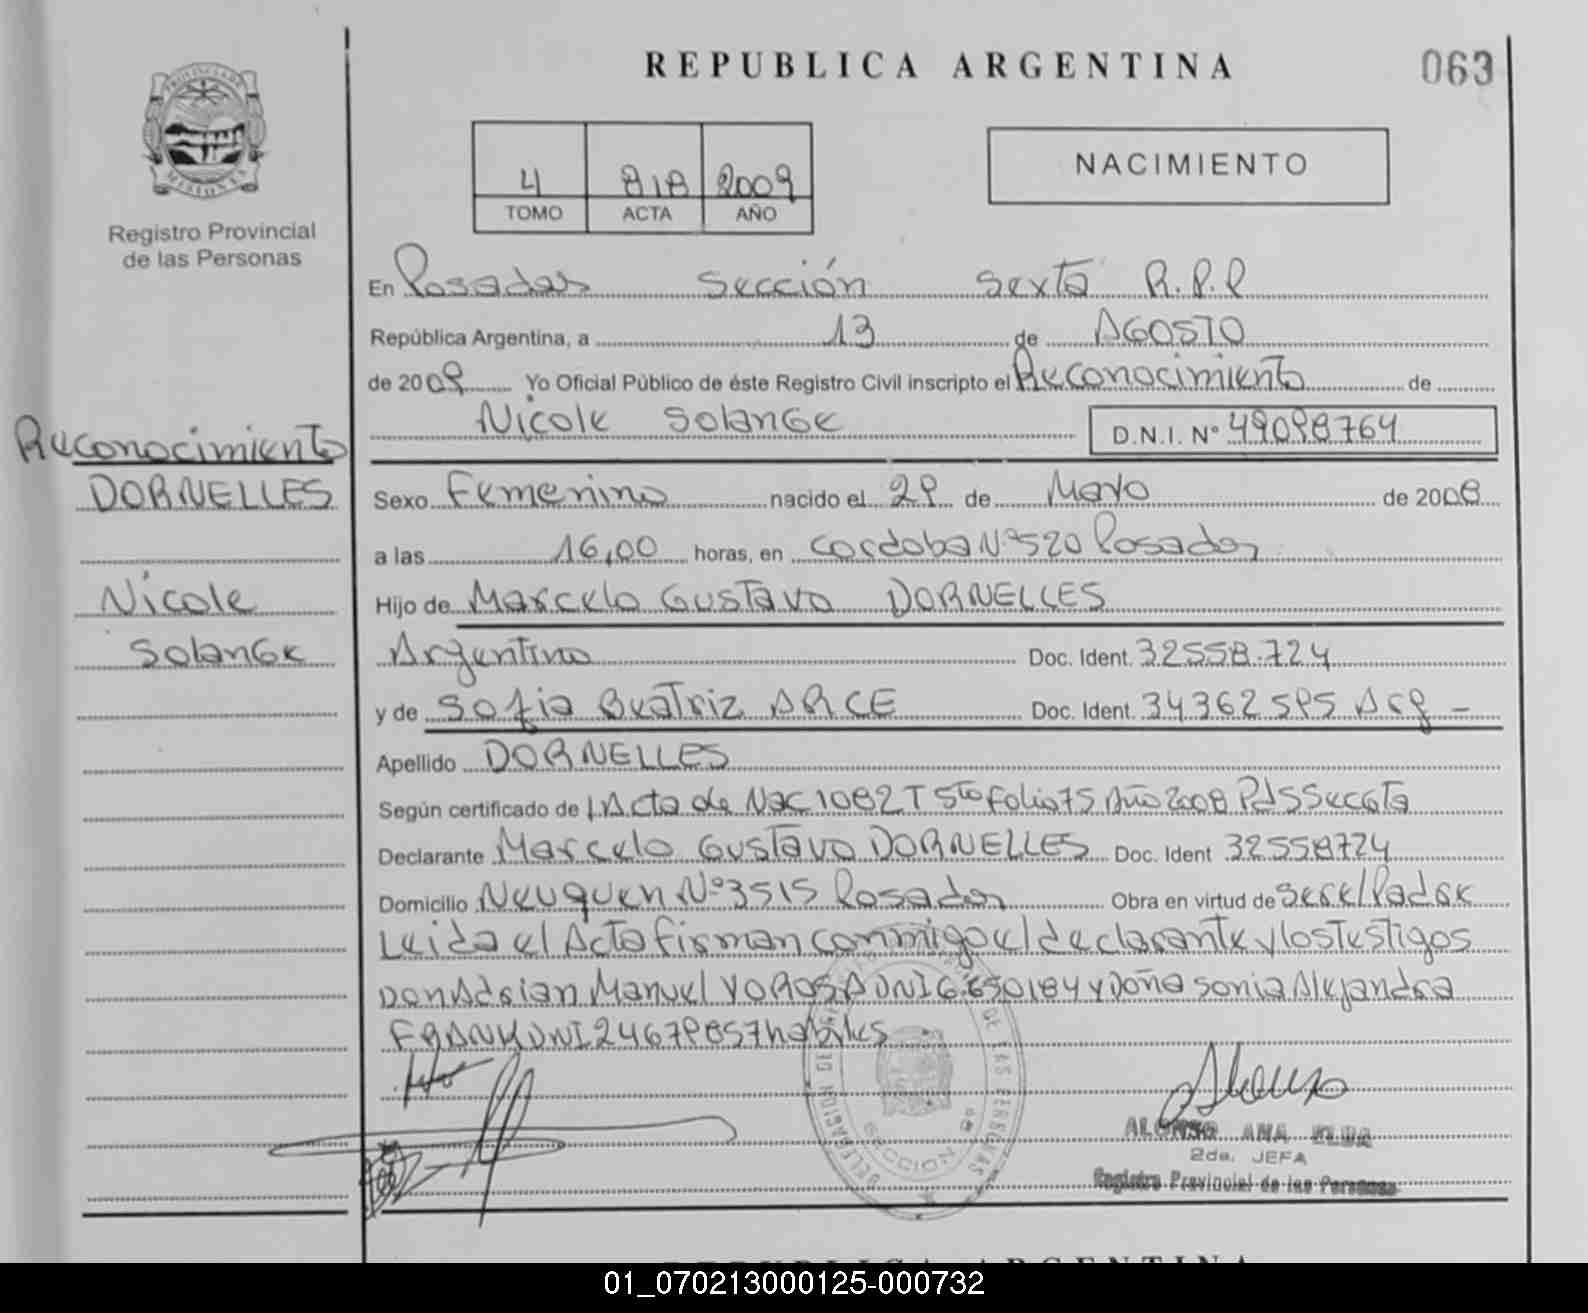 REPUBLICA ARGENTINA
063
PROVINCIA DE MISIONES
Registro Provincial
de las Personas
4 818 2009
TOMO ACTA AÑO
NACIMIENTO
En Posadas Sección Sexta R.P.P
República Argentina, a 13 de AGOSTO
de 2009 Yo Oficial Público de éste Registro Civil inscripto el Reconocimiento de
Nicole Solange
D.N.I. Nº 49098764
Reconocimiento
DORNELLES
Nicole
Solange
Sexo Femenino nacido el 29 de Mayo de 2008
a las 16,00 horas, en Cordoba Nº 520 Posadas
Hijo de Marcelo Gustavo DORNELLES
Argentino Doc. Ident. 32558.724
y de Sofia Beatriz ARCE Doc. Ident. 34362595 Arg -
Apellido DORNELLES
Según certificado de Acta de Nac 1082 T 5to Folio 75 Año 2008 Pds S
Declarante Marcelo Gustavo DORNELLES Doc. Ident 32558724
Domicilio Neuquen Nº 3515 Posadas Obra en virtud de Ser el Padre
Leida el Acta firman conmigo el declarante y los Testigos
Don Adrian Manuel DNI 6.650184 y Doña Sonia Alejandra
FRANK DNI 24679857 habiles
DELEGACION DE
DE LAS PERSONAS
SECCION 6º
ALONSO ANA ELBA
2da. JEFA
Registro Provincial de las Personas
REPUBLICA ARGENTINA
01_070213000125-000732